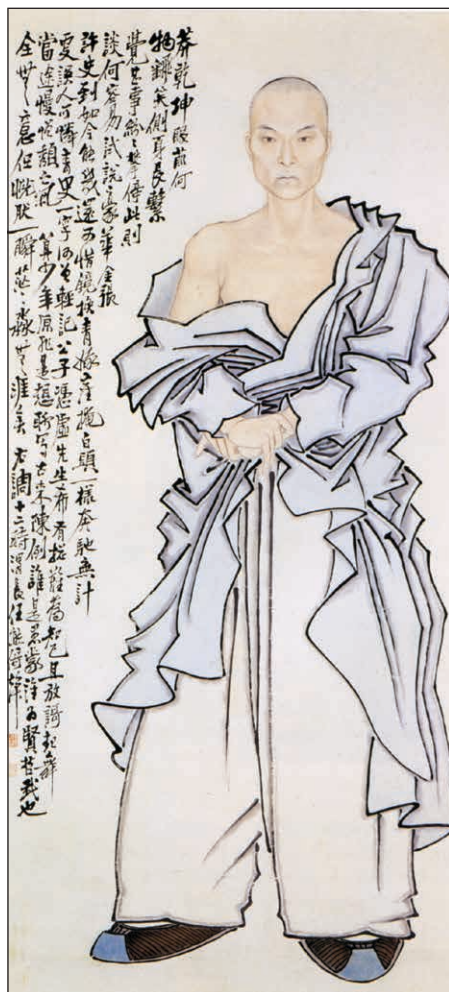 莽乾坤眼前何
物翻笑側身長繫
覺甚事紛〻攀倚此則
談何容易試說豪華金張
許史到如今能幾還可惜鏡換青娥塵掩白頭一樣奔馳無計
更誤人可憐青史一字何曾輕記公子憑虛先生希有總難為知己且放歌起舞
當途慢憎頹氣算少年原非是想聊寫古來陳例誰是愚蒙誰為賢哲我也
全無意但恍然一瞬茫〻淼無涯矣右調十二時渭長任熊倚聲